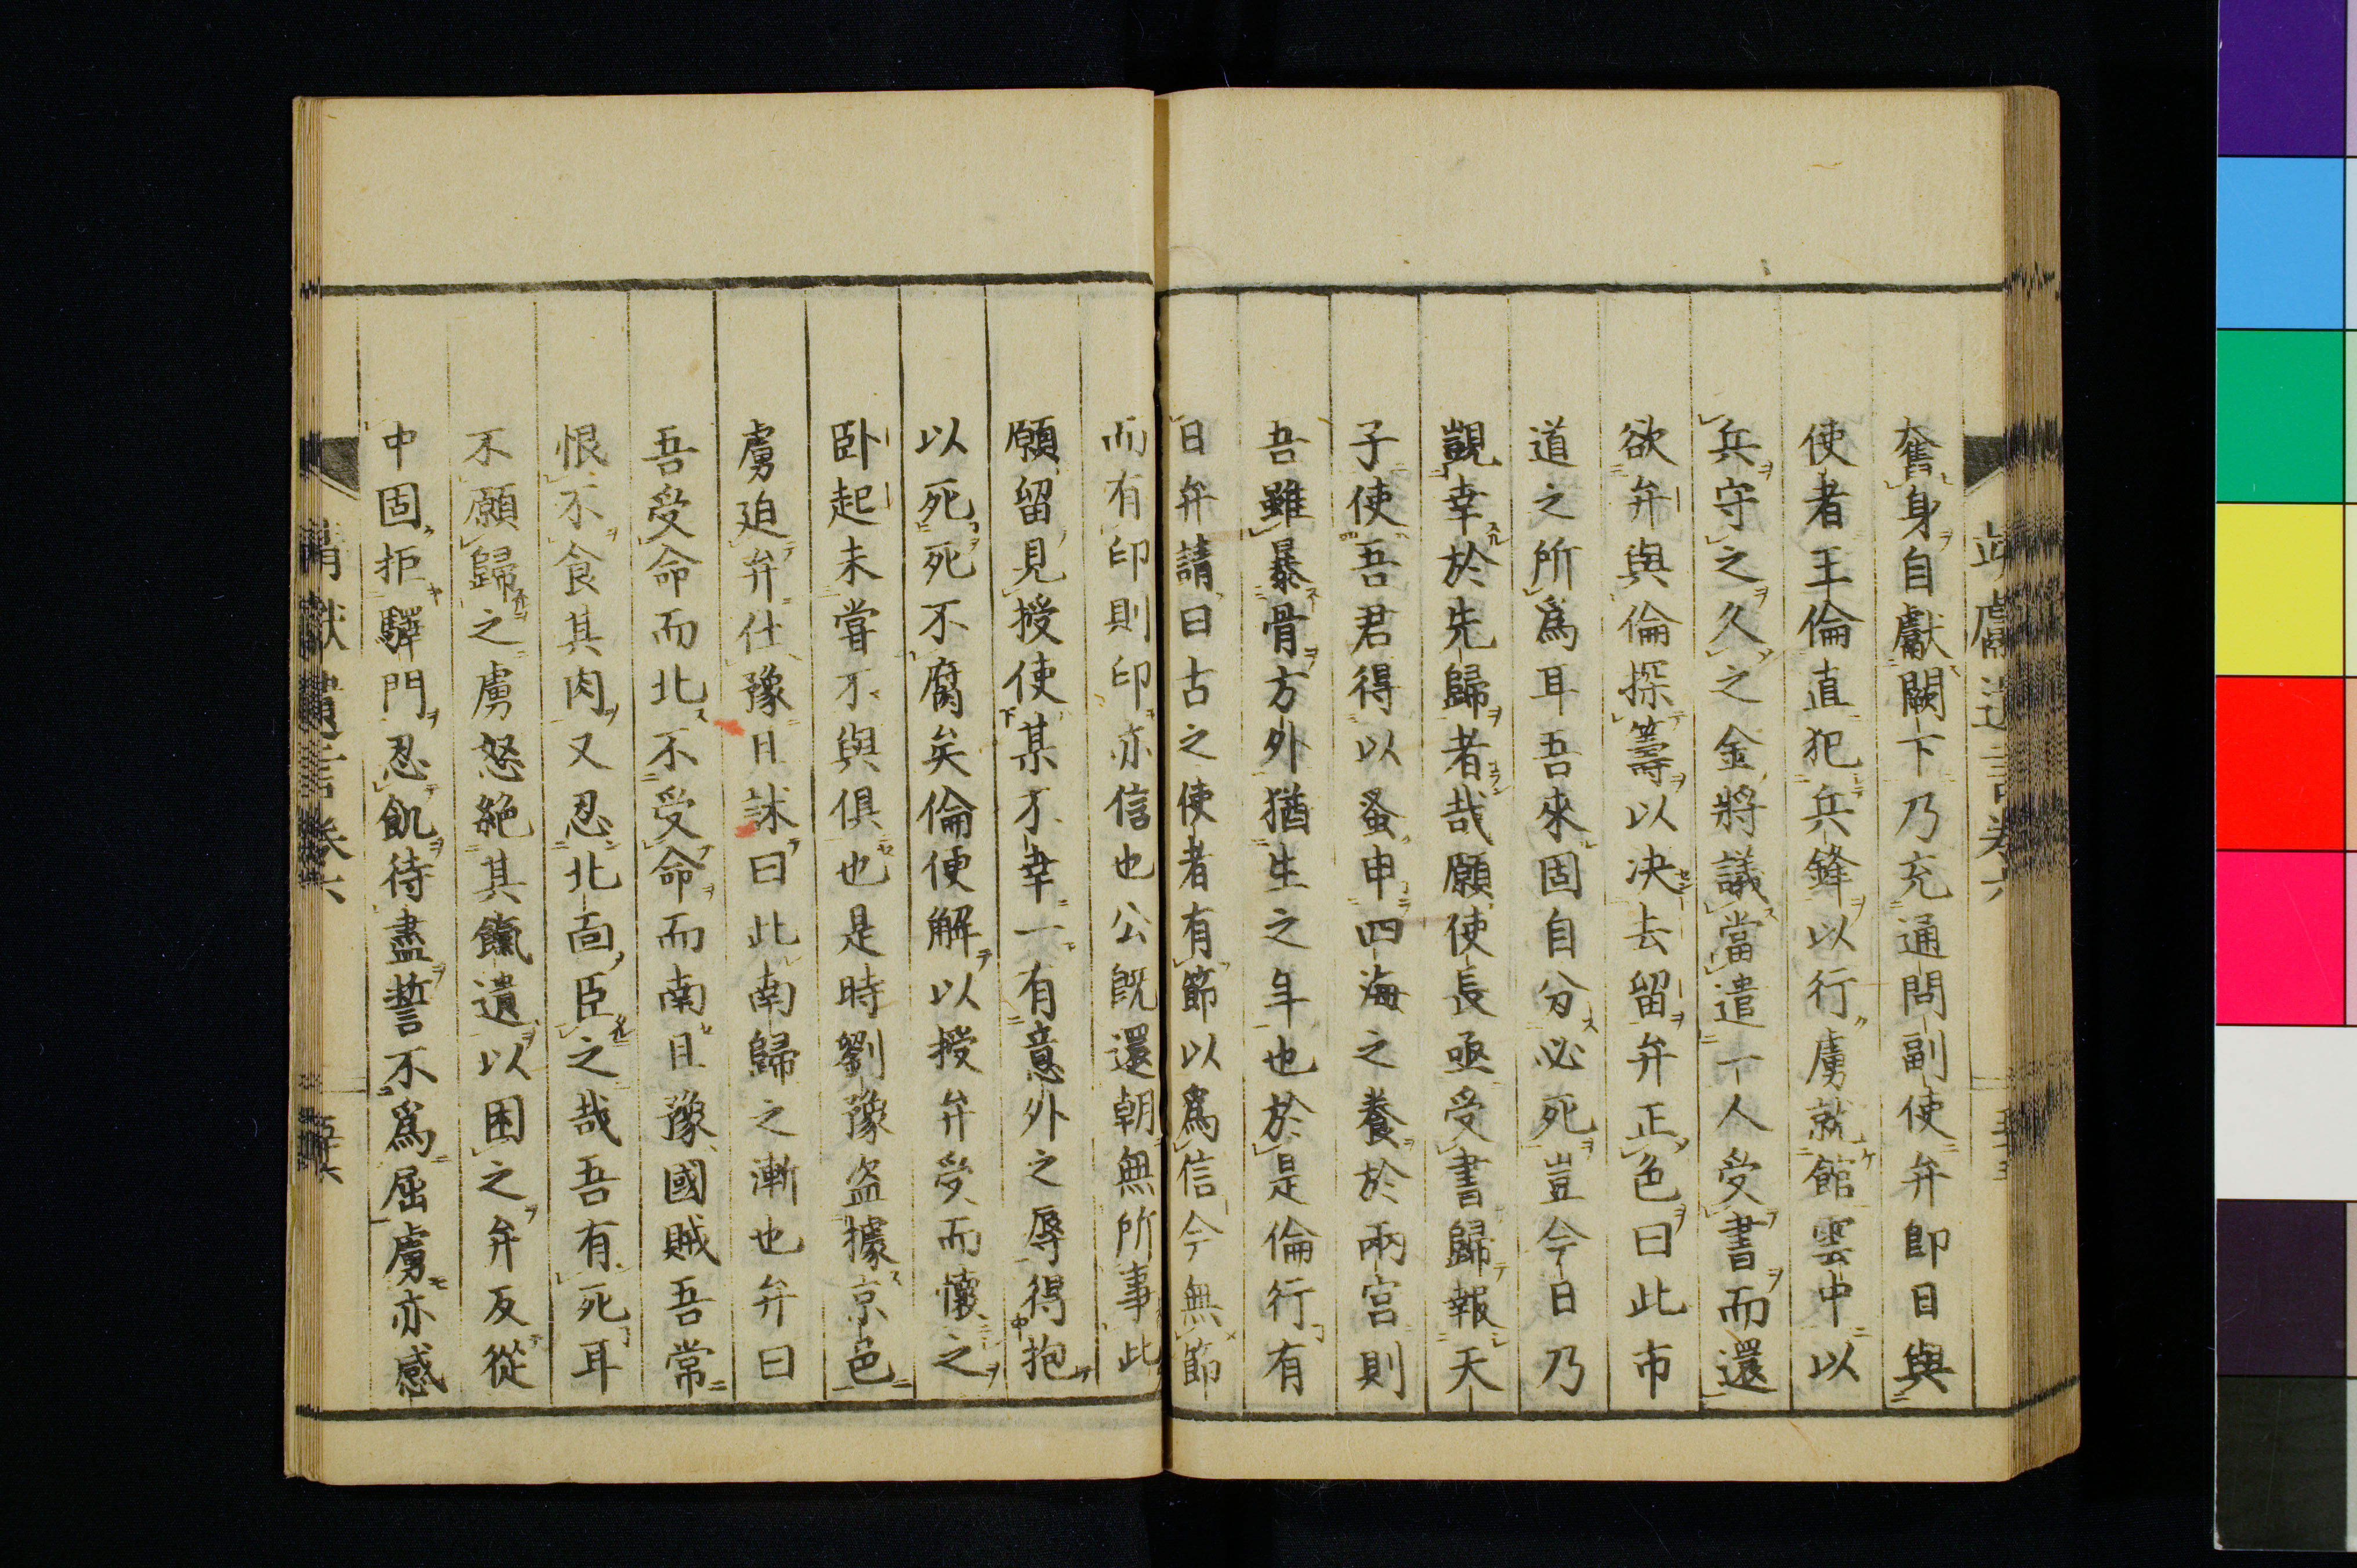 奮身自獻闕下乃充通問副使弁即日與
使者王倫直犯兵鋒以行虜就館雲中以
兵守之久之金將議當遣一人受書而還
欲弁與倫探籌以决去留弁正色曰此市
道之所爲耳吾來固自分必死豈今日乃
覬幸於先歸者哉願使長亟受書歸報天
子使吾君得以蚤申四海之養於兩宮則
吾雖暴骨方外猶生之年也於是倫行有
日弁請曰古之使者有節以爲信今無節
而有印則印亦信也公既還朝無所事此
願留見授使某不幸一有意外之辱得抱
以死死不腐矣倫便解以授弁受而懷之
臥起未嘗不與俱也是時劉豫盗據京邑
虜迫弁仕豫且訹曰此南歸之漸也弁曰
吾受命而北不受命而南且豫國賊吾常
恨不食其肉又忍北面臣之哉吾有死耳
不願歸之虜怒絶其餼遺以困之弁反從
中固拒驛門忍飢待盡誓不爲屈虜亦感
靖獻遺言卷六